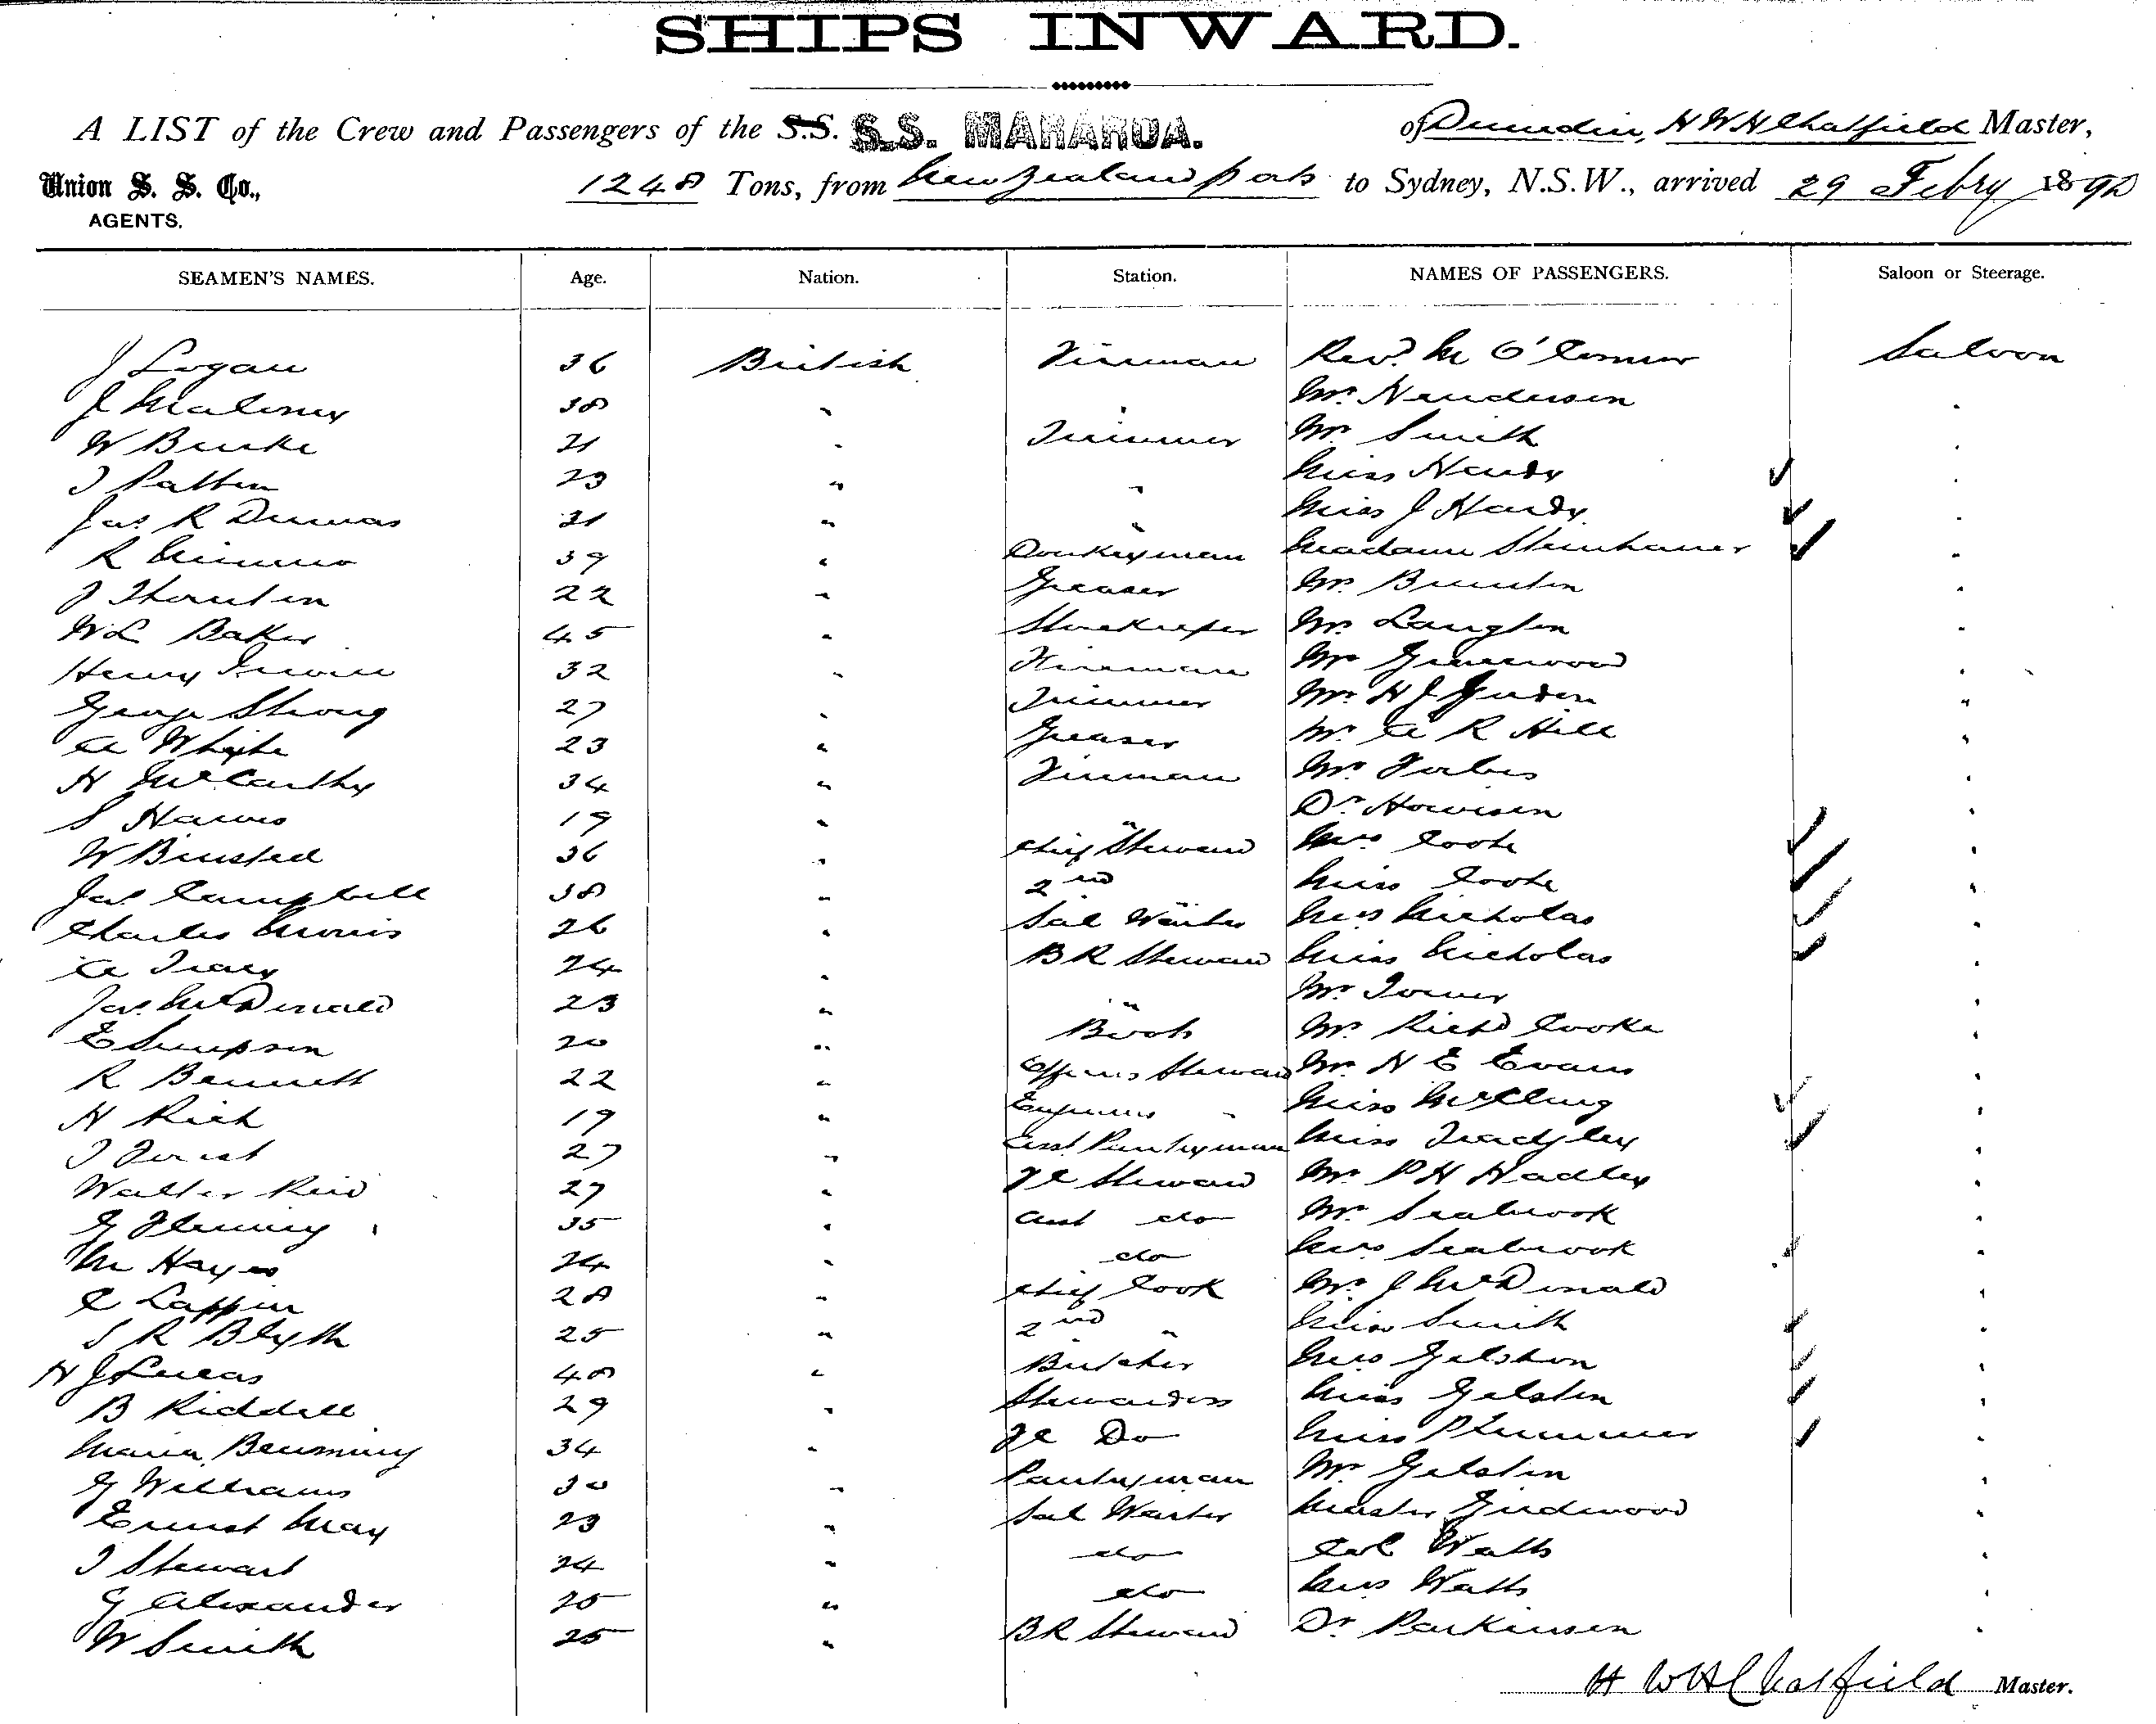 SHIPS INWARD.
A LIST of the Crew and Passengers of the S.S. S.S. MARAROA. of Dunedin, H W H Chatfield Master,
Union S. S. Co., 1248 Tons, from New Zealand ports to Sydney, N.S.W., arrived 29 Febry 1892
AGENTS.
SEAMEN'S NAMES. Age. Nation. Station. NAMES OF PASSENGERS. Saloon or Steerage.
J Logan 36 British Fireman Revd. M O'Connor Saloon
J Maloney 38 " " Mr. Henderson "
W Burke 21 " Trimmer Mr. Smith "
J Patten 23 " " Miss Hardy "
Jas R Dumas 21 " " Miss J Hardy "
R Nimmo 39 " Donkeyman Madame Steinhauer "
J Thornton 22 " Greaser Mr. Brunton "
W L Baker 45 " Storekeeper Mr. Langton "
Henry Irwin 32 " Fireman Mr Greenwood "
George Strong 27 " Trimmer Mr. H J "
A White 23 " Greaser Mr. A R Hill "
H McCarthy 34 " Fireman Mr. Forbes "
S Hawes 19 " " Dr. Howison "
W Binsted 36 " Chief Steward Mrs Coote "
Jas Campbell 38 " 2nd " Miss Coote "
Charles Morris 26 " Sal Waiter Mrs Nicholas "
A Tracy 24 " B R Steward Miss Nicholas "
Jas. McDonald 23 " " Mr. Tower "
E Simpson 20 " Boots Mr. Richd Cooke "
R Bennett 22 " Officers Steward Mr. H E Evans "
H Rich 19 " Engineers " Miss McClurg "
J 27 " Asst Pantryman Miss "
Walter Reid 27 " F C Steward Mr. P H Hadley "
G Fleming 35 " Asst do Mr. Seabrook "
M Hayes 24 " do Mrs Seabrook "
C Lappin 28 " Chief Cook Mr. J McDonald "
S R Blyth 25 " 2nd " Miss Smith "
H J Lucas 48 " Butcher Mrs Gelston "
B Riddell 29 " Stewardess Miss Gelston "
Maria 34 " F C Do Miss Plummer "
G Williams 30 " Pantryman Mr. Gelston "
Ernest May 23 " Sal Waiter Master Girdwood "
J Stewart 24 " do Col Watts "
G Alexander 25 " do Mrs Watts "
W Smith 25 " B R Steward Dr. Parkinson "
H W H Chatfield Master.